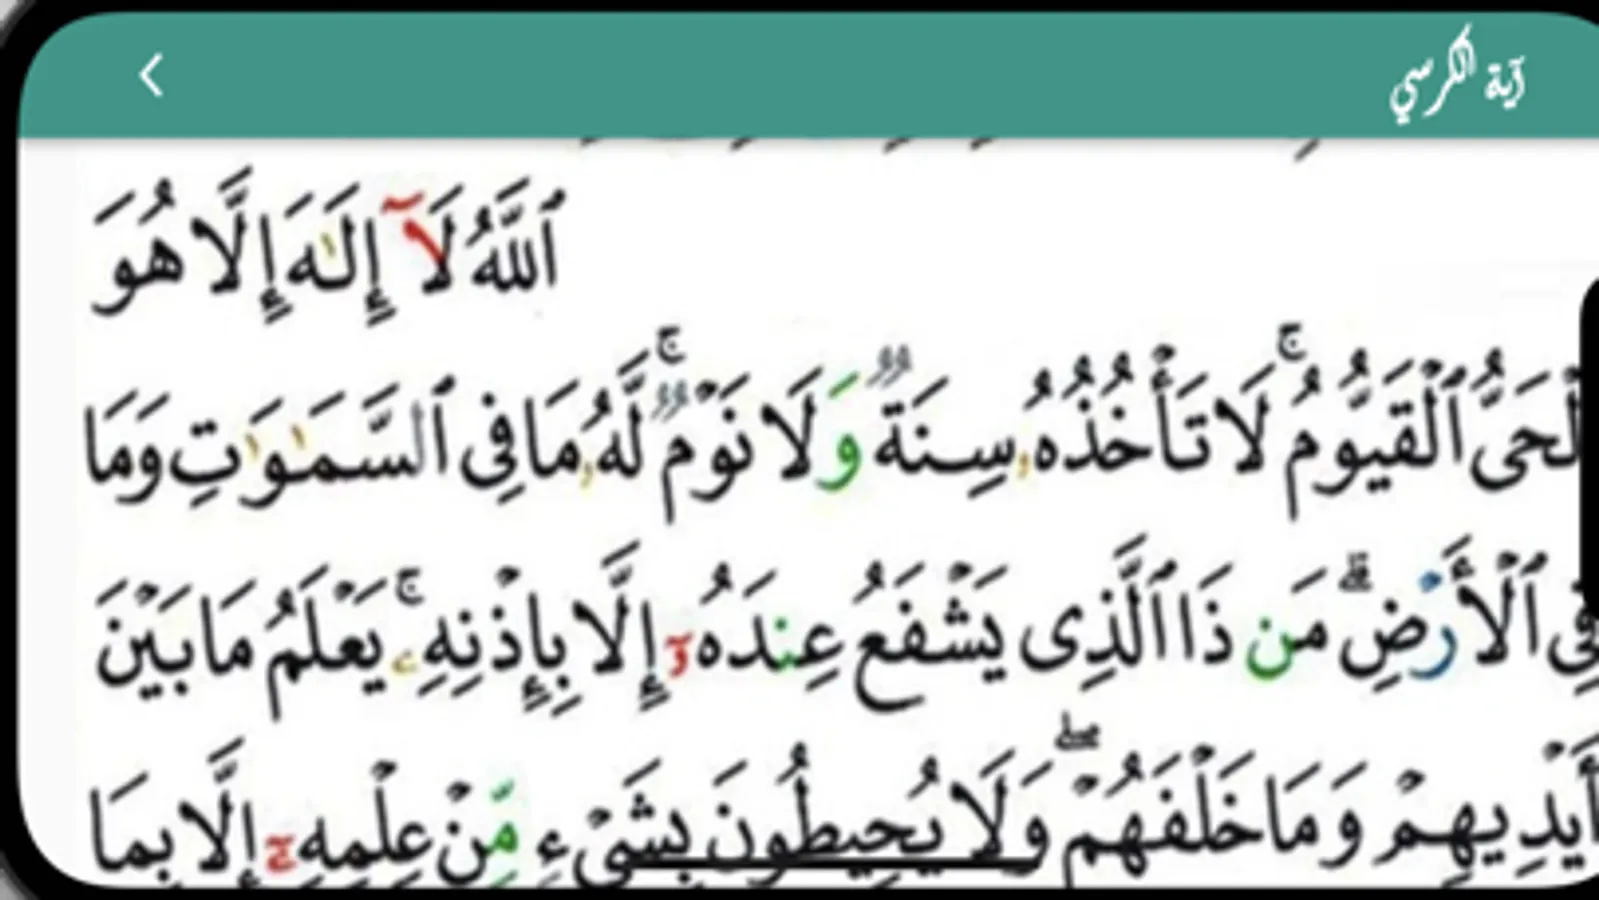 آية الكرسي
ٱللَّهُ لَآ إِلَـٰهَ إِلَّا هُوَ
لْحَىُّ ٱلْقَيُّومُ ۚ لَا تَأْخُذُهُۥ سِنَةٌ وَلَا نَوْمٌ ۚ لَّهُۥ مَا فِى ٱلسَّمَـٰوَٰتِ وَمَا
فِى ٱلْأَرْضِ ۗ مَن ذَا ٱلَّذِى يَشْفَعُ عِندَهُۥٓ إِلَّا بِإِذْنِهِۦ ۚ يَعْلَمُ مَا بَيْنَ
أَيْدِيهِمْ وَمَا خَلْفَهُمْ ۖ وَلَا يُحِيطُونَ بِشَىْءٍ مِّنْ عِلْمِهِۦٓ إِلَّا بِمَا